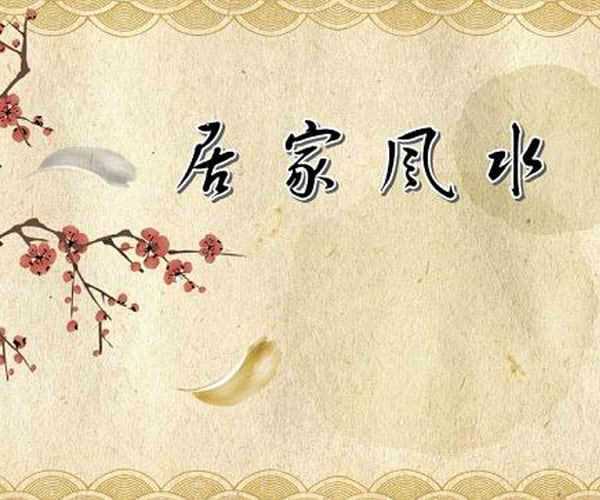 居家风水